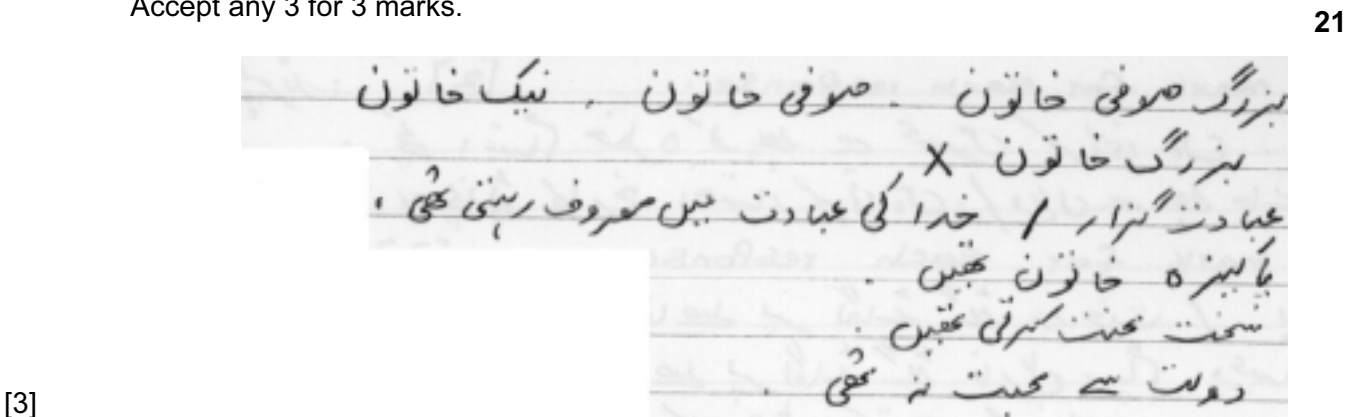 Accept any 3 for 3 marks.
21
بزرگ صوفی خاتون ۔ صوفی خاتون ۔ نیک خاتون
بزرگ خاتون X
عبادت گزار / خدا کی عبادت میں مصروف رہتی تھی ۔
پاکیزہ خاتون تھیں ۔
سخت محنت کرتی تھیں ۔
دولت سے محبت نہ تھی ۔
[3]